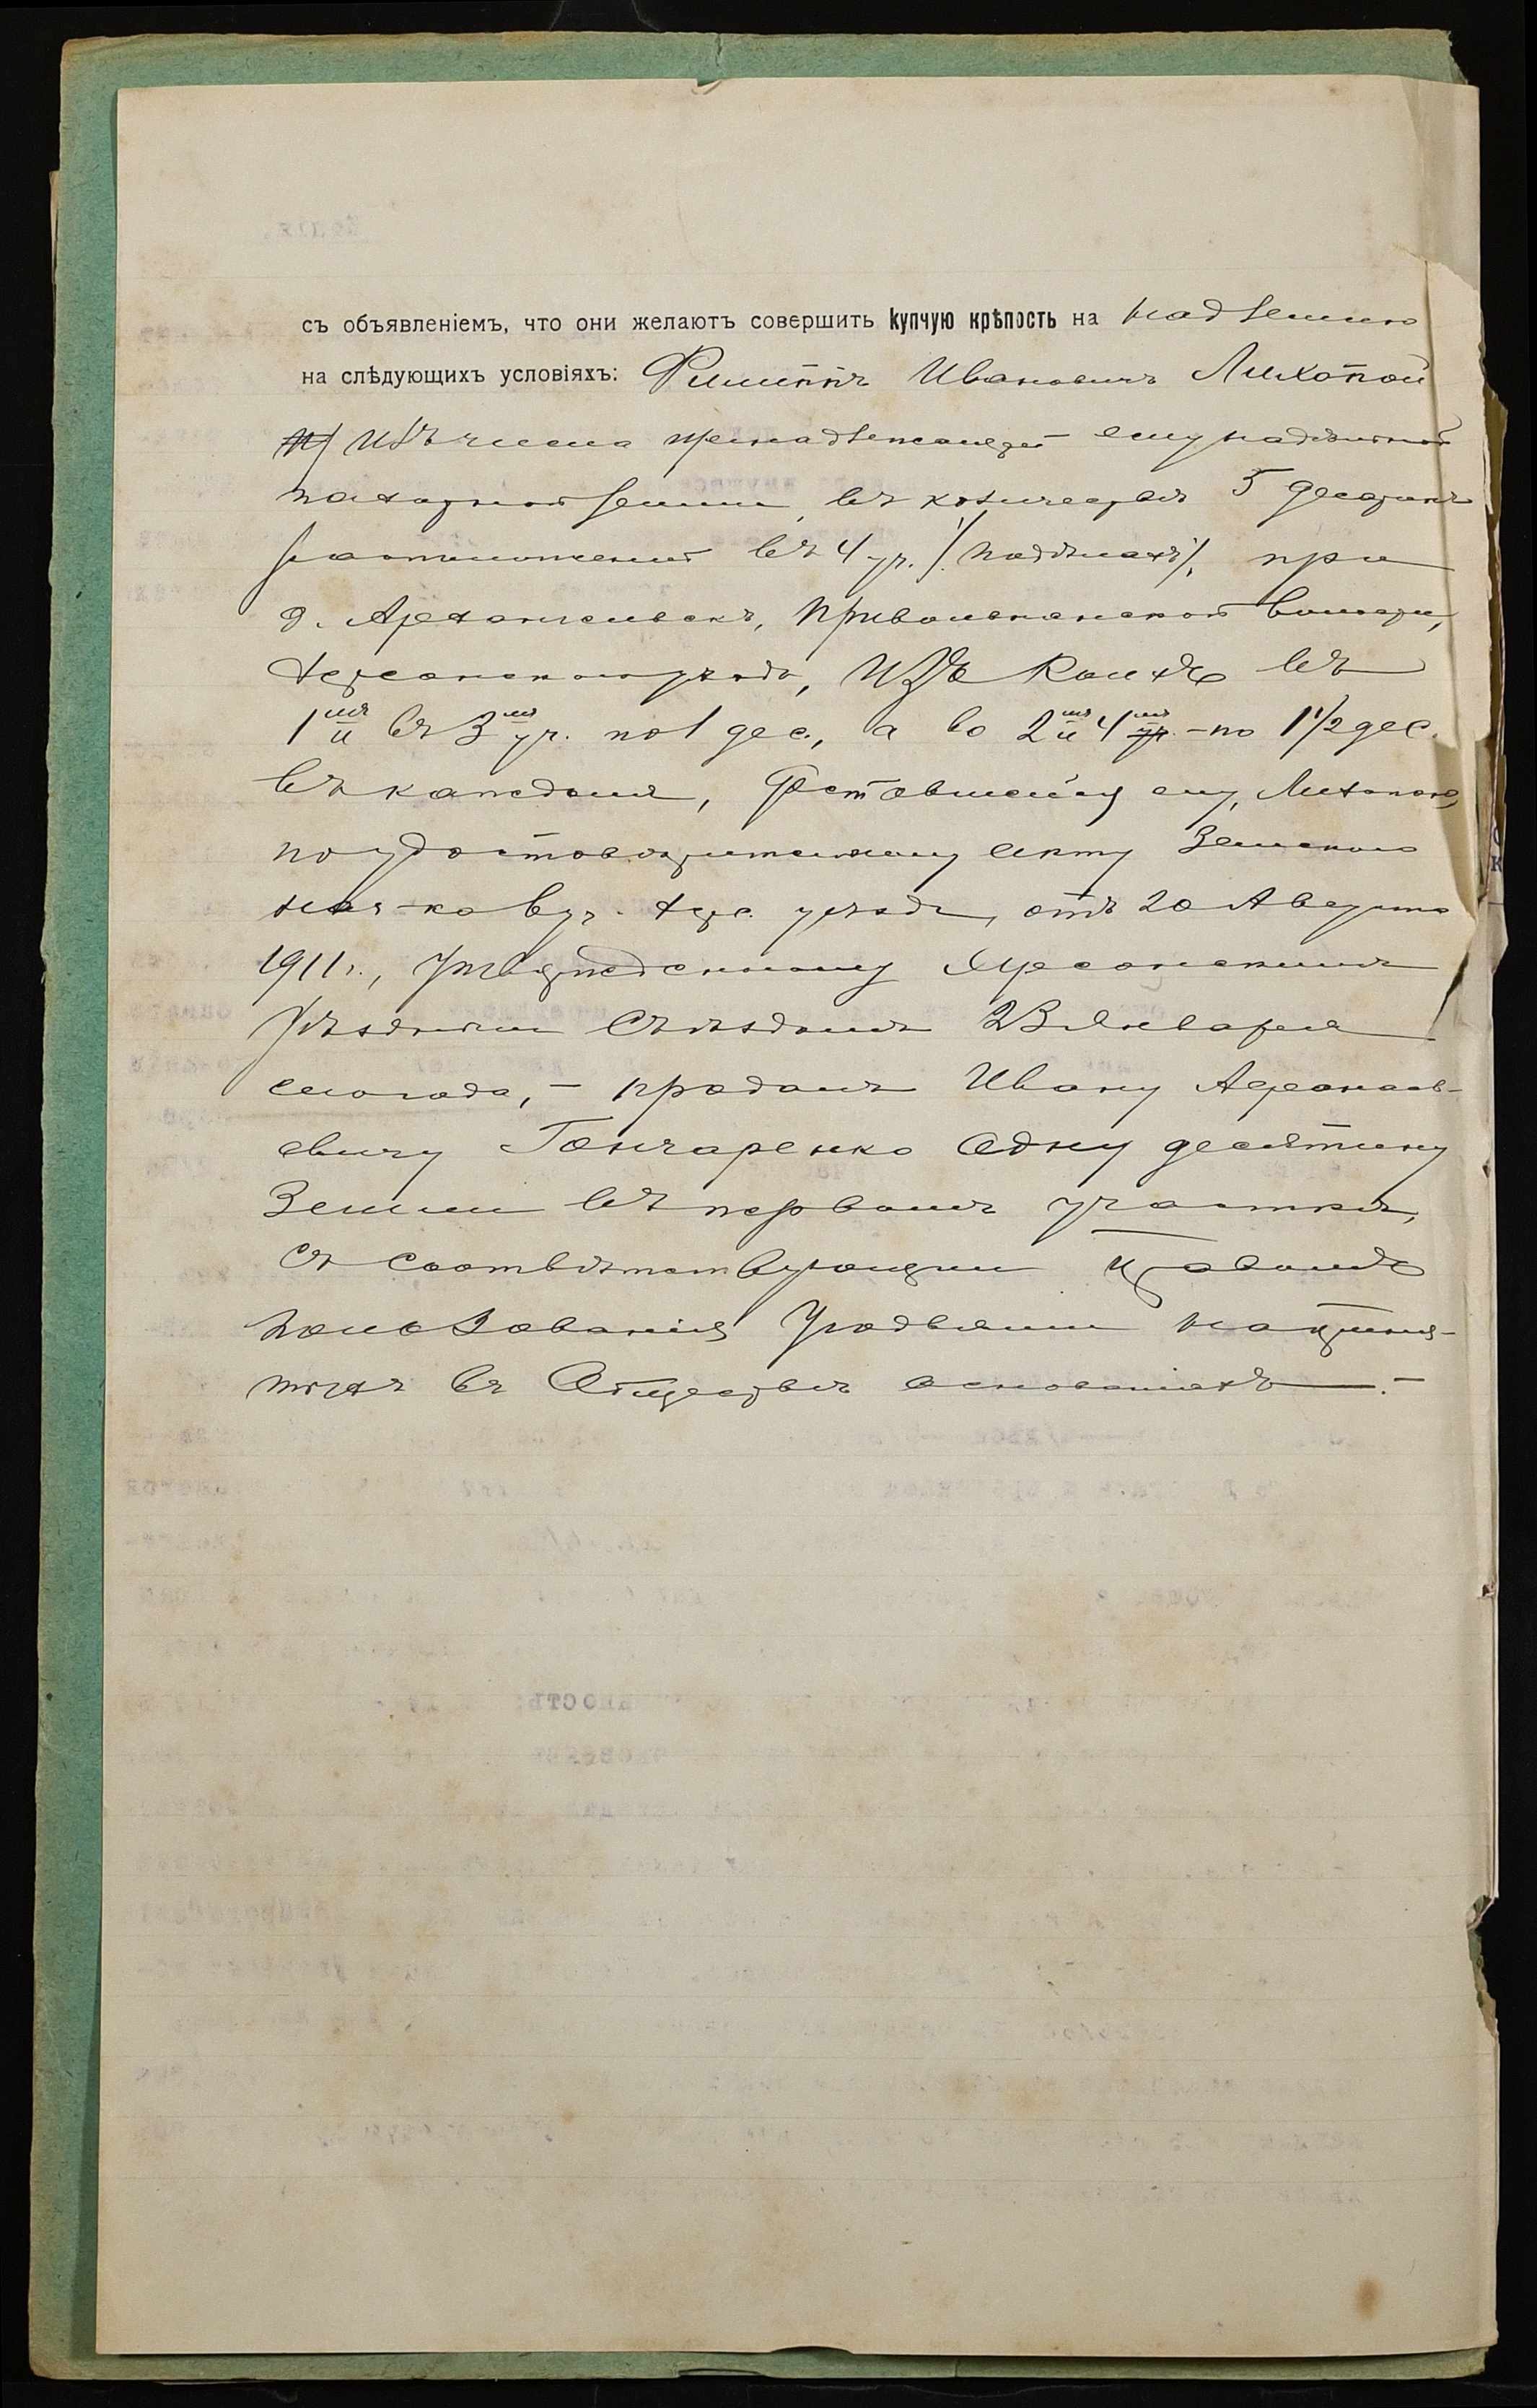 съ объявленіемъ, что они желаютъ совершить купчую крѣпость на над. землю
на слѣдующихъ условіяхъ: Филиппъ Ивановичъ Лихопой
изъ числа принадлежащей ему надѣльной
пахотной земли, въ количествѣ 5 десятинъ
расположенной въ 4 уч. /. надѣлахъ /. при
д. Архангельскъ, Привольнянской волости,
Херсонскаго уѣзда, изъ коихъ въ
1мъ и въ 3мъ уч. по 1 дес., а во 2мъ и 4мъ уч. - по 1 1/2 дес.
въ каждомъ, доставшейся ему, Лихопою,
по удостовѣрительному акту Земскаго
нач-ка уч. Херс. уѣзда, отъ 20 Августа
1911 г., утвержденному Херсонскимъ
Уѣзднымъ Съѣздомъ 23 Января
сего года, - продалъ Ивану Афанась-
евичу Гончаренко одну десятину
земли въ первомъ участкѣ,
съ соотвѣтствующимъ правомъ
пользованія угодьями на приня-
тыхъ въ Обществѣ основаніяхъ. -